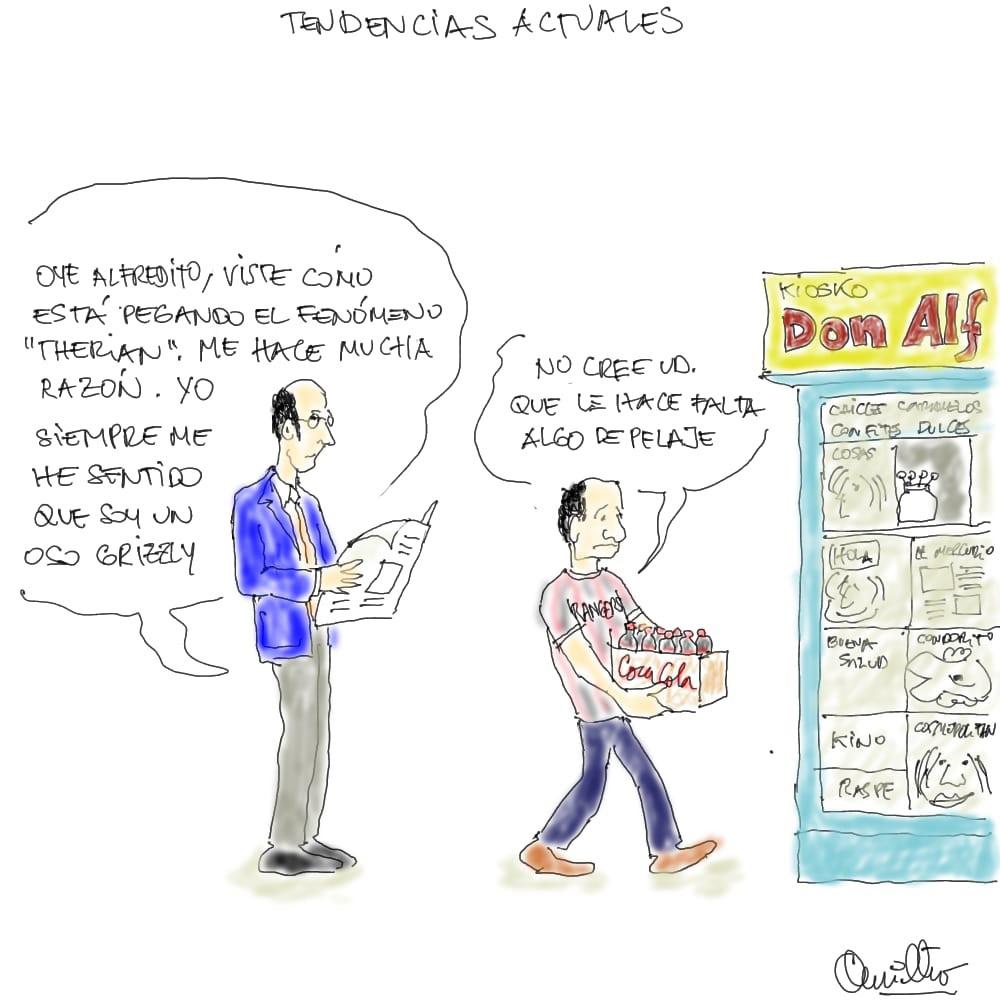 TENDENCIAS ACTUALES
OYE ALFREDITO, VISTE CÓMO
ESTÁ PEGANDO EL FENÓMENO
"THERIAN". ME HACE MUCHA
RAZÓN. YO
SIEMPRE ME
HE SENTIDO
QUE SOY UN
OSO GRIZZLY
NO CREE UD.
QUE LE HACE FALTA
ALGO DE PELAJE
RANGERS
Coca Cola
KIOSKO
Don Alf
CHICLES CARAMELOS
CONFITES DULCES
COSAS
HOLA
EL MERCURIO
BUENA
SALUD
CONDORITO
KINO
COSMOPOLITAN
RASPE